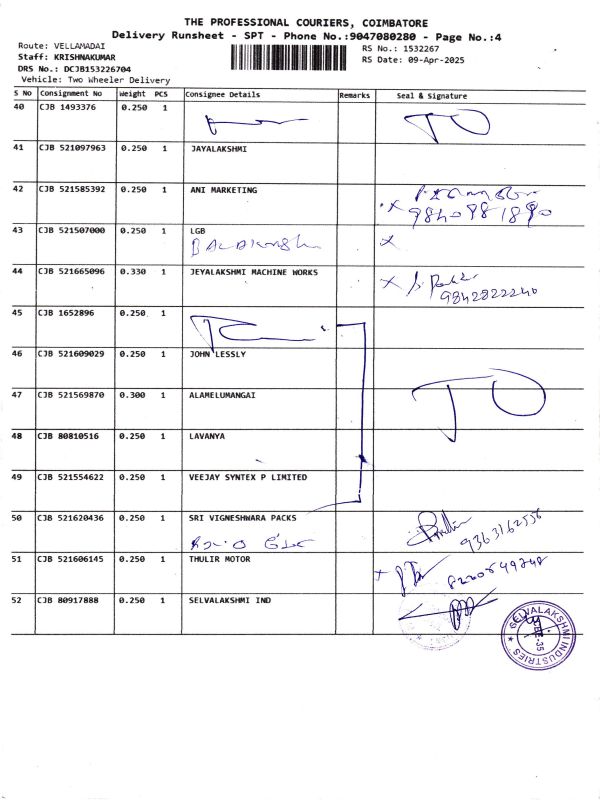 THE PROFESSIONAL COURIERS, COIMBATORE
Delivery Runsheet - SPT - Phone No.:9047080280 - Page No.:4
Route: VELLAMADAI
RS No.: 1532267
Staff: KRISHNAKUMAR
RS Date: 09-Apr-2025
DRS No.: DCJB153226704
Vehicle: Two Wheeler Delivery
S No Consignment No Weight PCS Consignee Details Remarks Seal & Signature
40 CJB 1493376 0.250 1
41 CJB 521097963 0.250 1 JAYALAKSHMI
42 CJB 521585392 0.250 1 ANI MARKETING
43 CJB 521507000 0.250 1 LGB
44 CJB 521665096 0.330 1 JEYALAKSHMI MACHINE WORKS
9842822240
45 CJB 1652896 0.250 1
46 CJB 521609029 0.250 1 JOHN LESSLY
47 CJB 521569870 0.300 1 ALAMELUMANGAI
48 CJB 80810516 0.250 1 LAVANYA
49 CJB 521554622 0.250 1 VEEJAY SYNTEX P LIMITED
50 CJB 521620436 0.250 1 SRI VIGNESHWARA PACKS
51 CJB 521606145 0.250 1 THULIR MOTOR
52 CJB 80917888 0.250 1 SELVALAKSHMI IND
SELVALAKSHMI INDUSTRIES
CBE-35